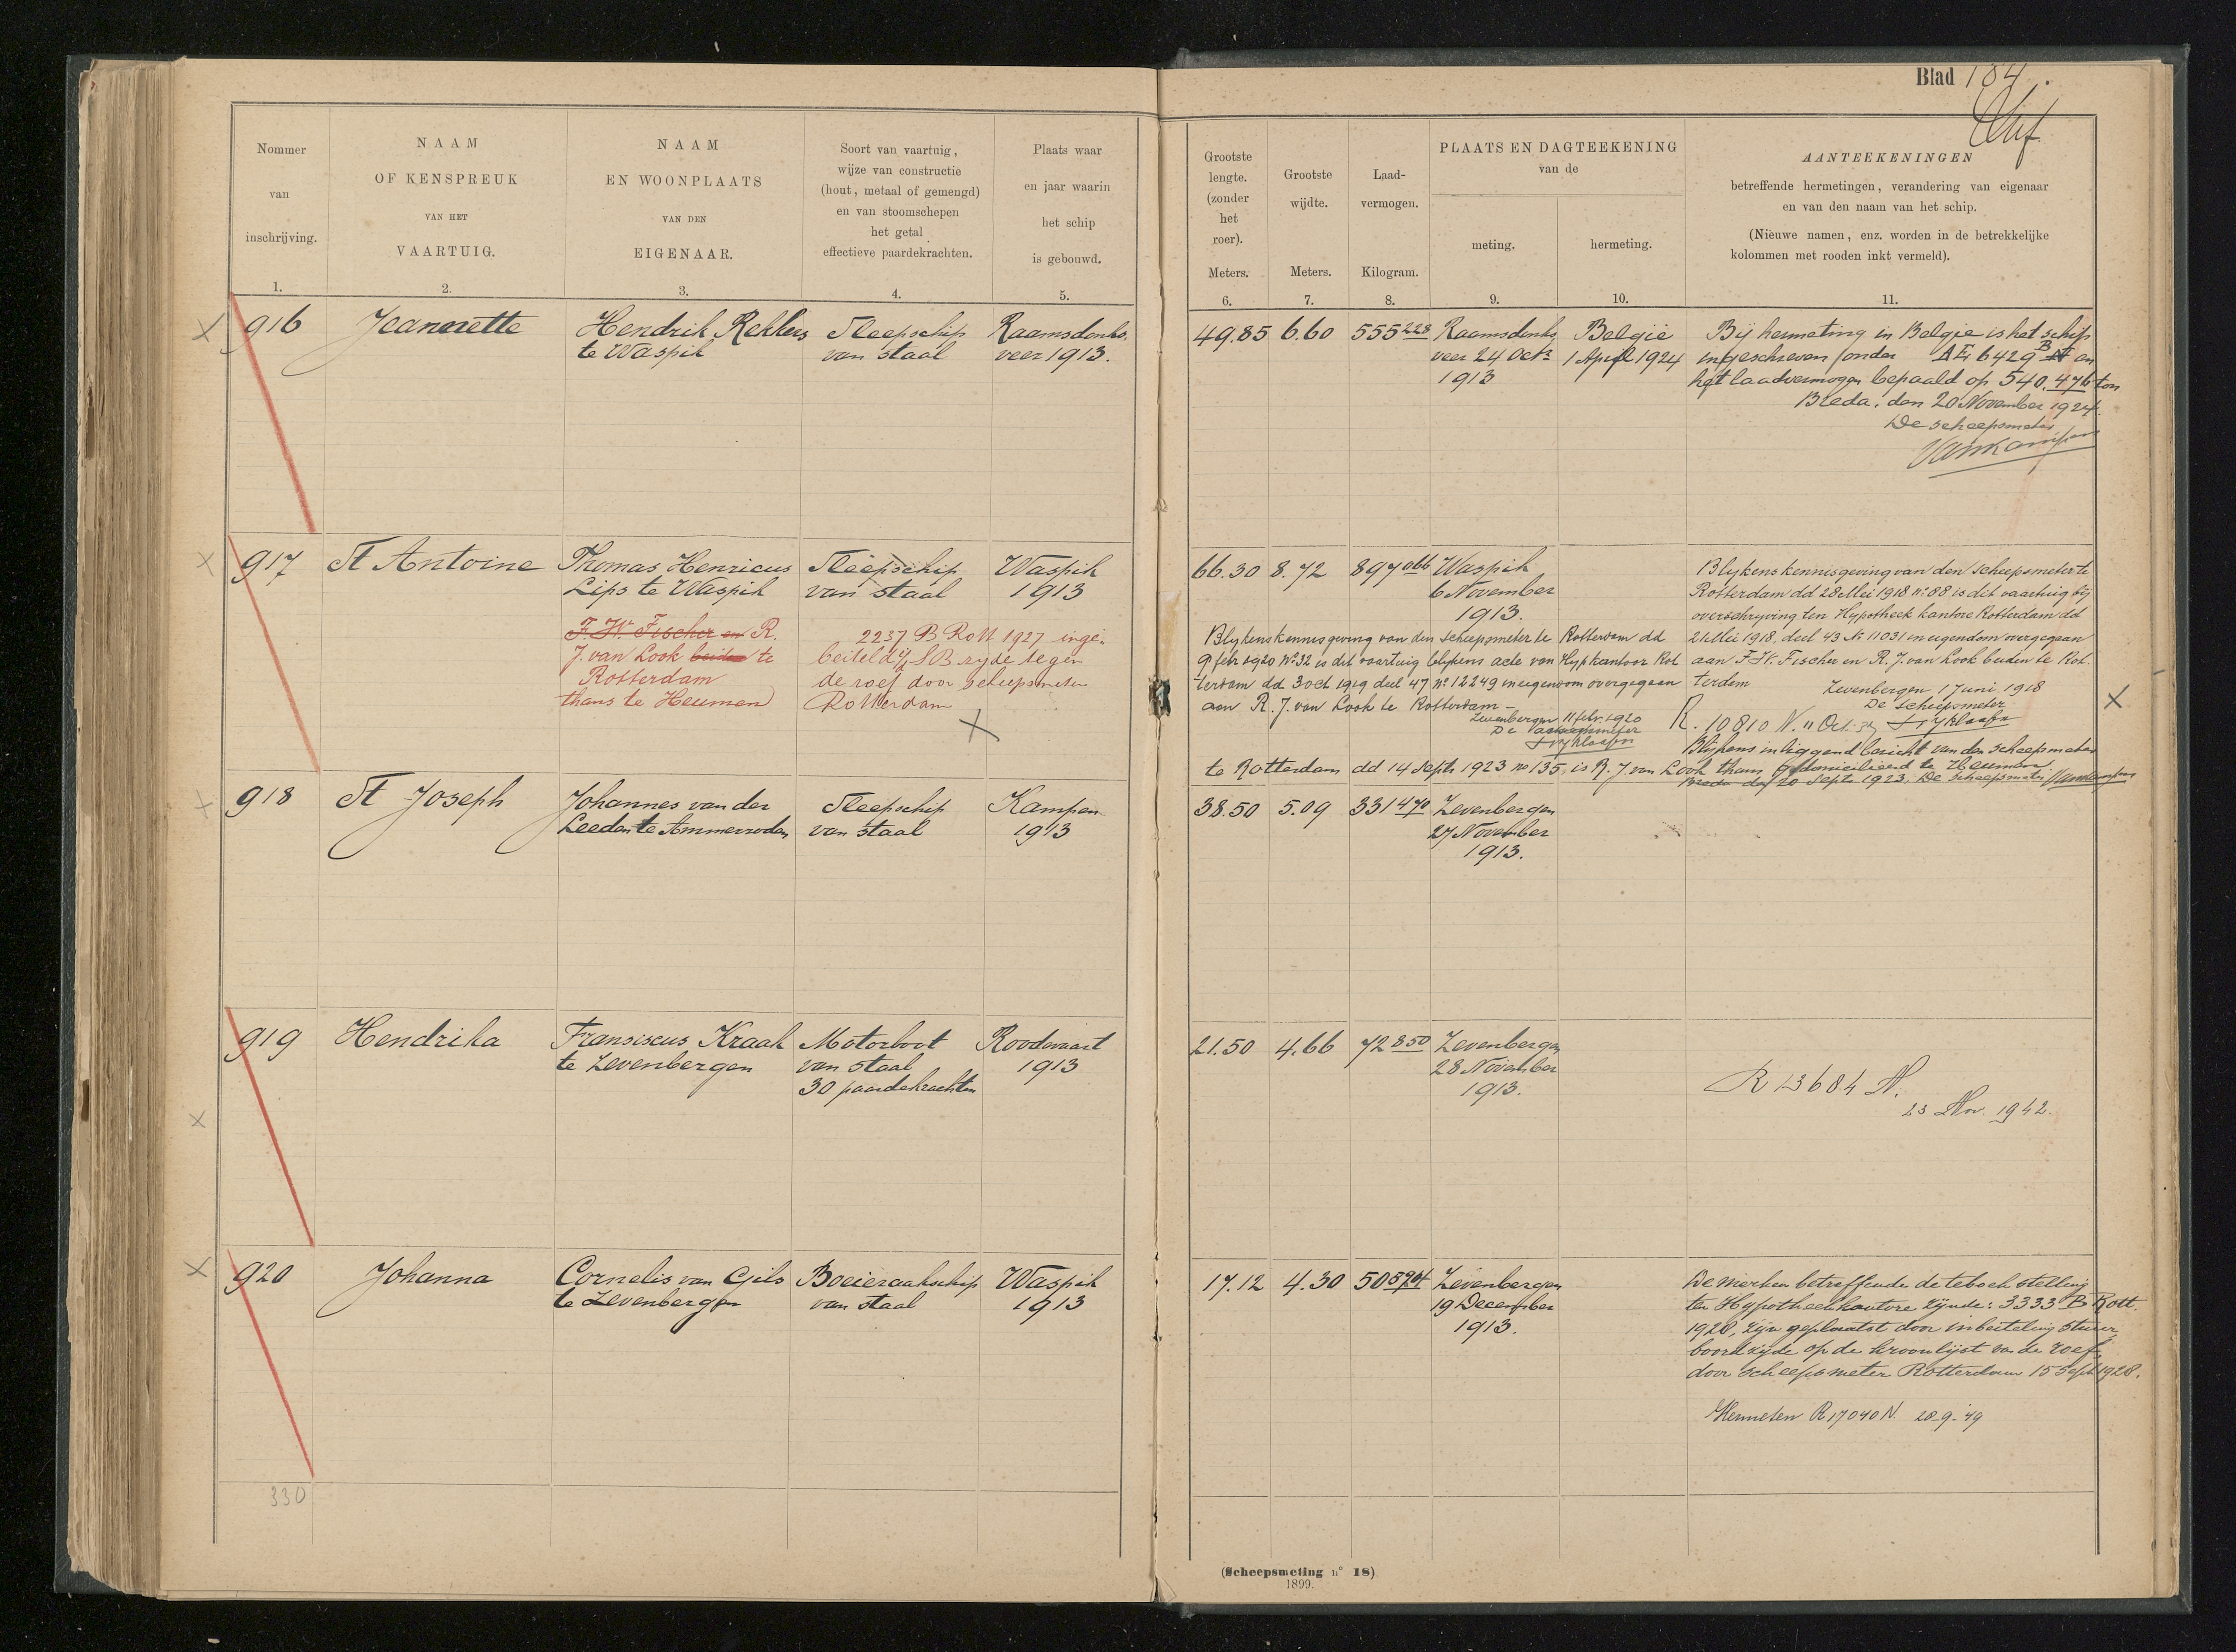 Blad 184.
Nommer
van
inschrijving.
1.
NAAM
OF KENSPREUK
VAN HET
VAARTUIG.
2.
NAAM
EN WOONPLAATS
VAN DEN
EIGENAAR.
3.
Soort van vaartuig,
wijze van constructie
(hout, metaal of gemengd)
en van stoomschepen
het getal
effectieve paardekrachten.
4.
Plaats waar
en jaar waarin
het schip
is gebouwd.
5.
Grootste
lengte.
(zonder
het
roer).
Meters.
6.
Grootste
wijdte.
Meters.
7.
Laad-
vermogen.
Kilogram.
8.
PLAATS EN DAGTEEKENING
van de
meting.
9.
hermeting.
10.
AANTEEKENINGEN
betreffende hermetingen, verandering van eigenaar
en van den naam van het schip.
(Nieuwe namen, enz. worden in de betrekkelijke
kolommen met rooden inkt vermeld).
11.
916
Jeannette
Hendrik Rekkers
te Waspik
Sleepschip
van staal
Raamsdonks
veer 1913.
49.85
6.60
555228
Raamsdonks
veer 24 Octr
1913
België
1 April 1924
Bij hermeting in Belgie is het schip
ingeschreven onder AE 6429 B N en
het laadvermogen bepaald op 540.476 ton
Breda, den 20 November 1924.
De scheepsmeter
Vankampen
917
St Antoine
Thomas Henricus
Lips te Waspik
F. W. Fischer en R.
J. van Look beiden te
Rotterdam
thans te Heumen
Sleepschip
van staal
2237 B Rott 1927 inge-
beiteld SB zyde tegen
de roef door scheepsmeter
Rotterdam
Waspik
1913
66.30
8.72
897066
Waspik
6 November
1913.
Blykens kennisgeving van den scheepsmeter te Rotterdam dd
9 febr 1920 No 32 is dit vaartuig blykens acte van Hypkantoor Rot
terdam dd 3 Oct 1919 deel 47 no 12249 in eigendom overgegaan
aan R. J. van Look te Rotterdam -
Zevenbergen 11 febr. 1920
De scheepsmeter
Blykens kennisgeving van den scheepsmeter te
Rotterdam dd 28 Mei 1918 no 88 is dit vaartuig bij
overschryving ten Hypotheek kantore Rotterdam dd
21 Mei 1918, deel 43 No 11031 in eigendom overgegaan
aan F. W. Fischer en R. J. van Look beiden te Rot-
terdam
Zevenbergen 1 Juni 1918
De scheepsmeter
R. 10810 N. 11 Oct.
Blijkens inliggend bericht van den scheepsmeter
te Rotterdam dd 14 Septr 1923 no 135, is R. J. van Look thans gedomicilieerd te Heumen.
Breda den 20 Septr 1923. De scheepsmeter Vankampen
918
St Joseph
Johannes van der
Leeden te Ammerzoden
Sleepschip
van staal
Kampen
1913
38.50
5.09
331470
Zevenbergen
27 November
1913.
919
Hendrika
Fransiscus Kraak
te Zevenbergen
Motorboot
van staal
30 paardekrachten
Roodevaart
1913
21.50
4.66
72850
Zevenbergen
28 November
1913.
R 13684 N.
23 Nov. 1942.
920
Johanna
Cornelis van Gils
te Zevenbergen
Boeieraakschip
van staal
Waspik
1913
17.12
4.30
50
Zevenbergen
19 December
1913.
De merken betreffende de teboekstelling
ten Hypotheekkantore zijnde: 3333 B Rott.
1928, zijn geplaatst door inbeiteling stuur
boordzijde op de kroonlijst van de roef,
door scheepsmeter Rotterdam 15 Sept 1928.
Hermeten R 17040 N. 28-9-'49
330
(Scheepsmeting no 18)
1899.